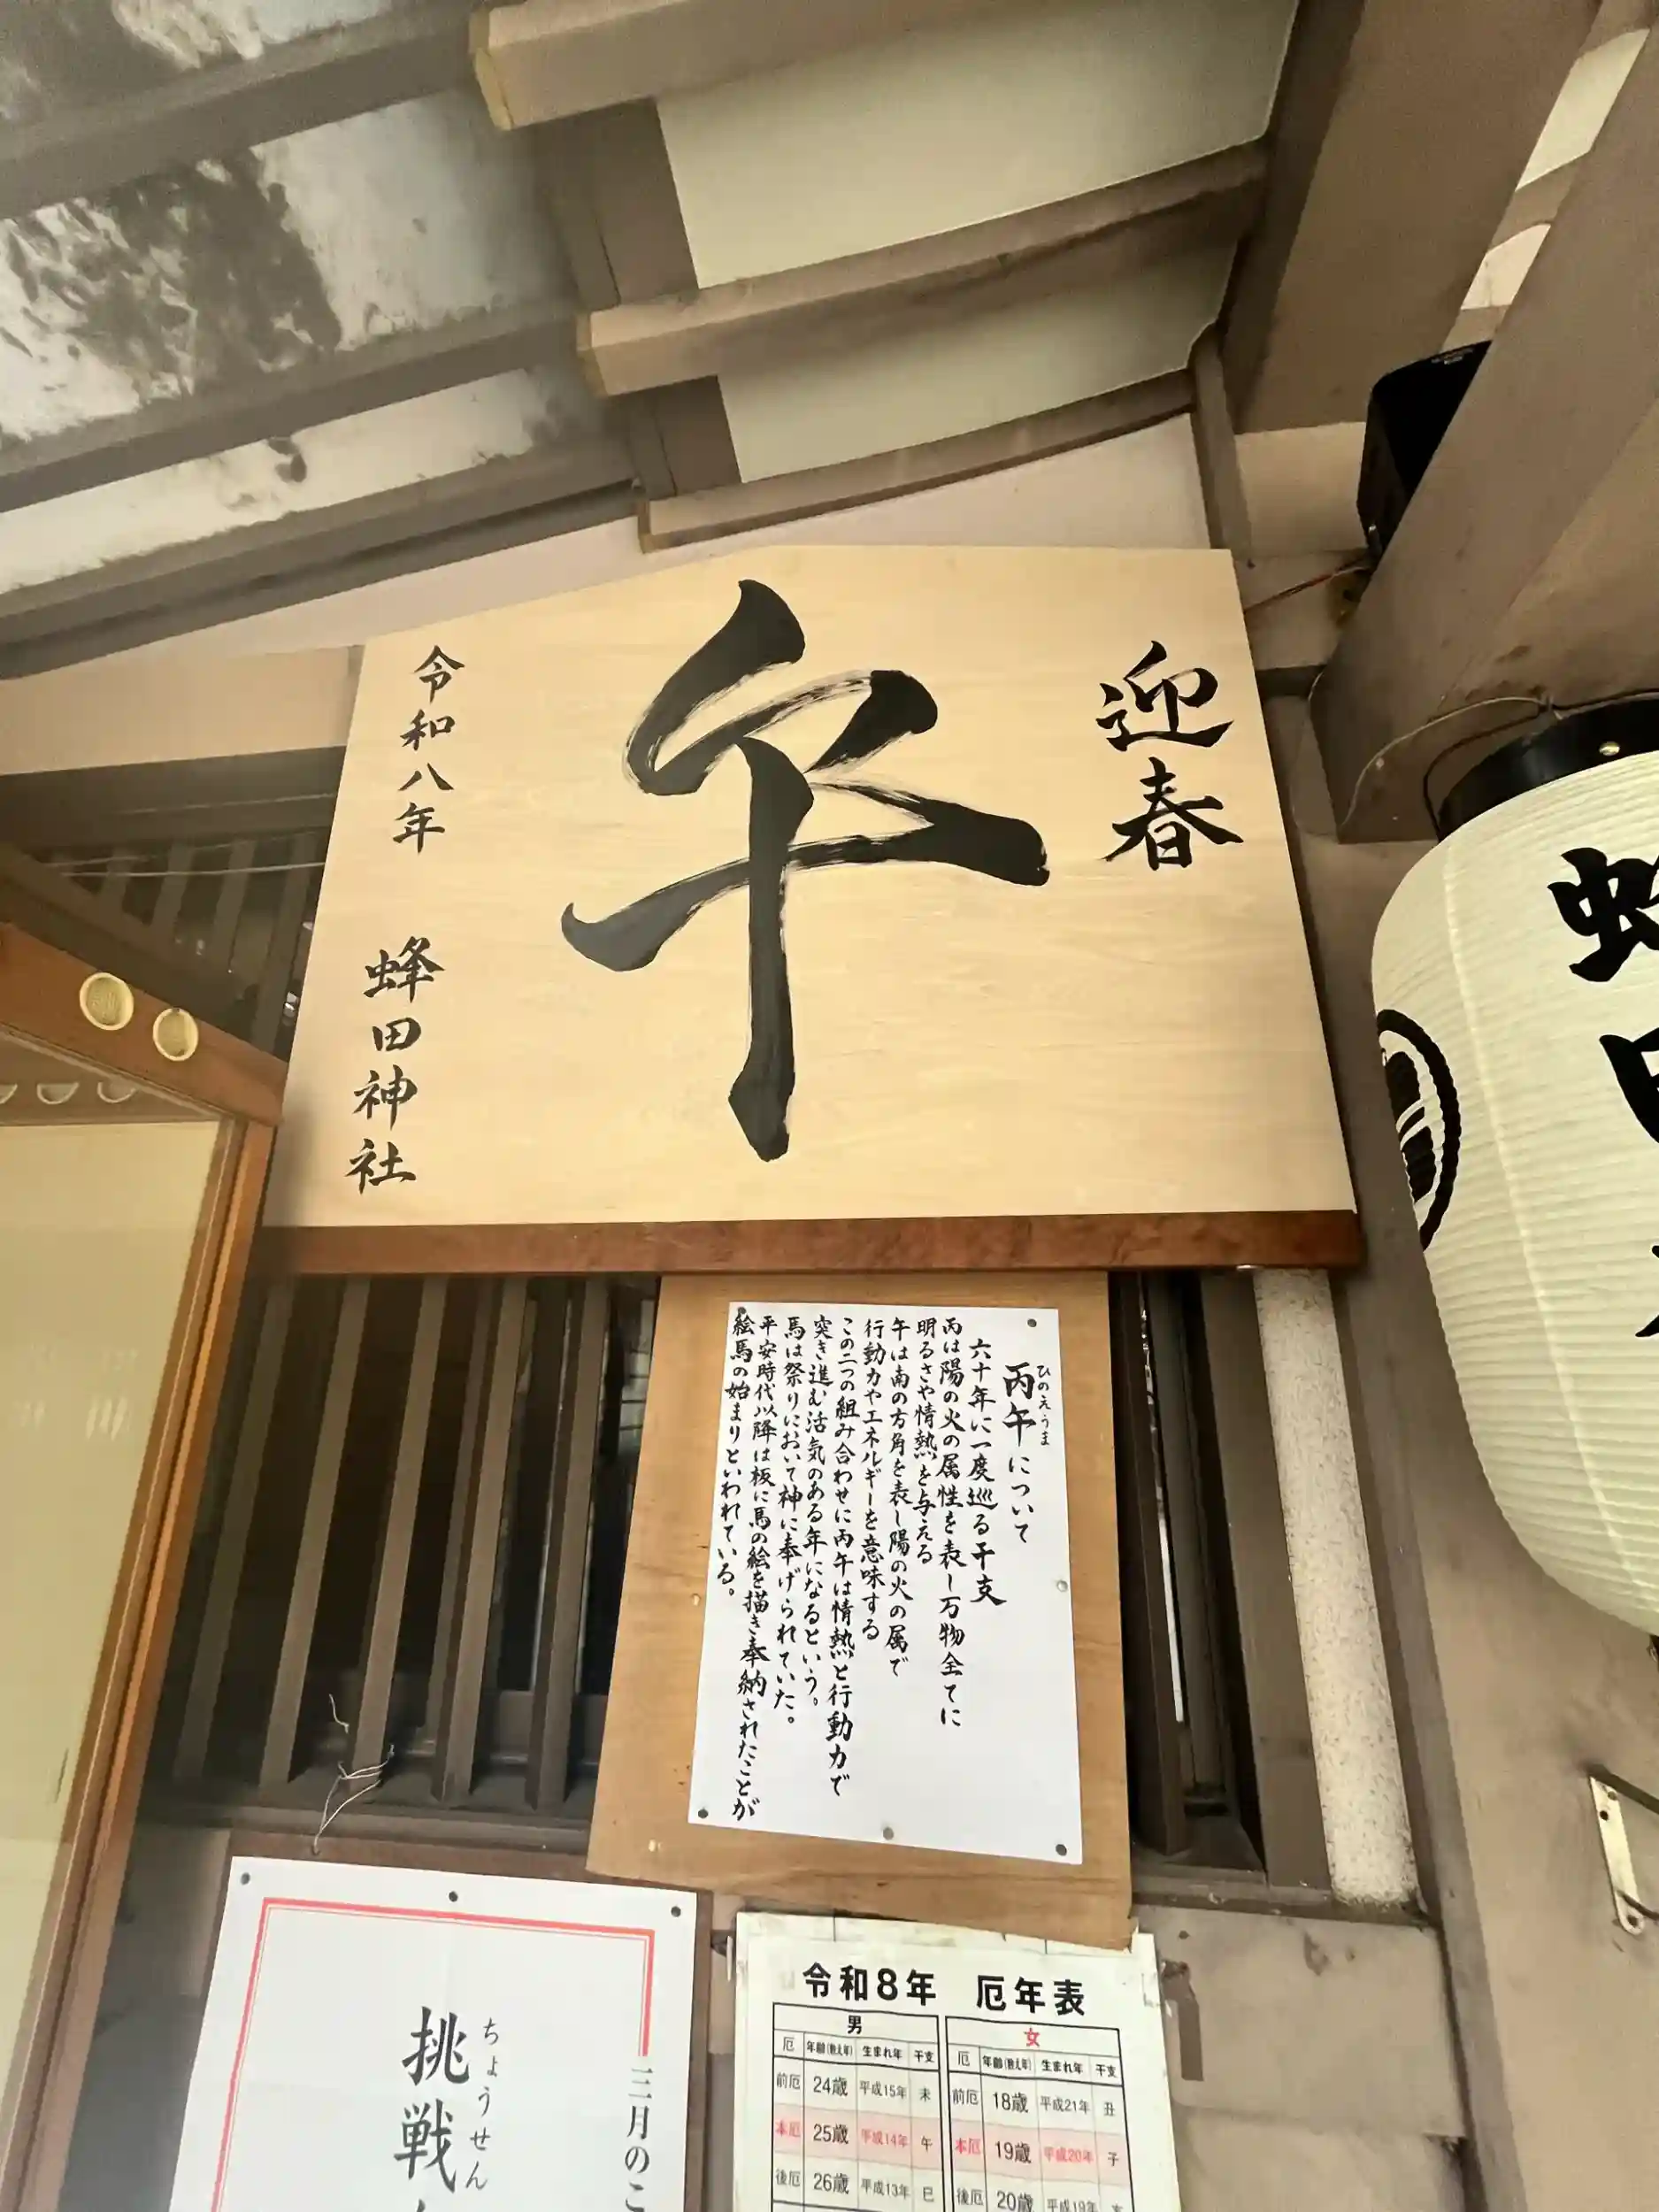 迎春
午
令和八年 蜂田神社
丙午について
ひのえうま
六十年に一度巡る干支
丙は陽の火の属性を表し万物全てに
明るさや情熱を与える
午は南の方角を表し陽の火の属で
行動力やエネルギーを意味する
この二つの組み合わせに丙午は情熱と行動力で
突き進む活気のある年になるという。
馬は祭りにおいて神に奉げられていた。
平安時代以降は板に馬の絵を描き奉納されたことが
絵馬の始まりといわれている。
三月のこ
挑戦
ちょうせん
令和8年 厄年表
男
厄 年齢(数え年) 生まれ年 干支
前厄 24歳 平成15年 未
本厄 25歳 平成14年 午
後厄 26歳 平成13年 巳
女
厄 年齢(数え年) 生まれ年 干支
前厄 18歳 平成21年 丑
本厄 19歳 平成20年 子
後厄 20歳 平成19年